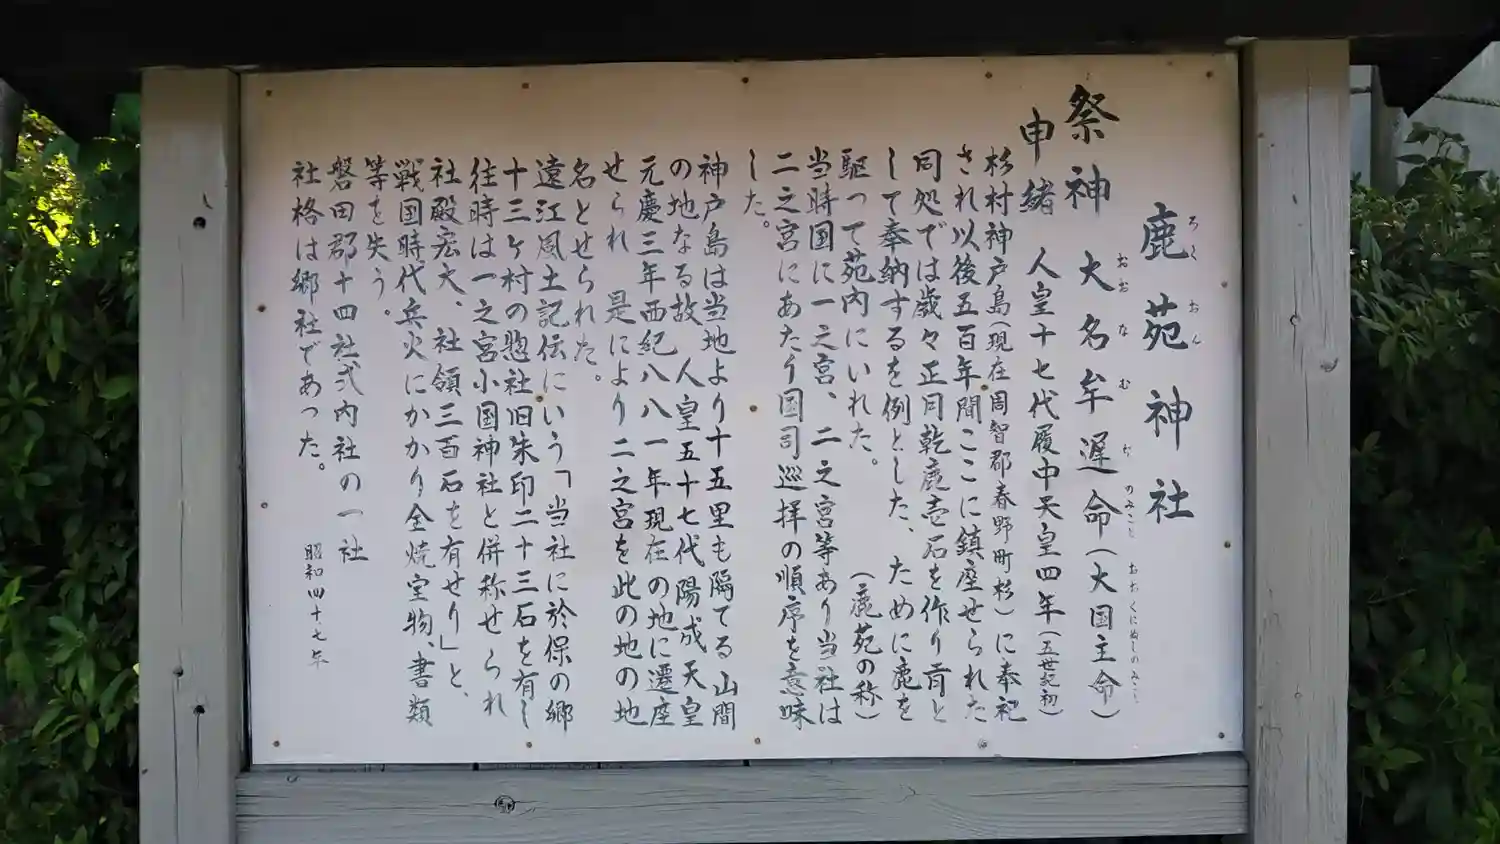 鹿苑神社
ろくおん
祭神 大名牟遅命(大国主命)
おおなむちのみこと おおくにぬしのみこと
由緒 人皇十七代履中天皇四年(五世紀初)
杉村神戸島(現在周智郡春野町杉)に奉祀
され以後五百年間ここに鎮座せられた
同処では歳々正月乾鹿壱石を作り苞と
して奉納するを例とした、ために鹿を
駆って苑内にいれた。 (鹿苑の称)
当時国に一之宮、二之宮等あり当社は
二之宮にあたり国司巡拝の順序を意味
した。
神戸島は当地より十五里も隔てる山間
の地なる故 人皇五十七代陽成天皇
元慶三年西紀八八一年現在の地に遷座
せられ 是により二之宮を此の地の地
名とせられた。
遠江風土記伝にいう「当社に於保の郷
十三ヶ村の惣社旧朱印二十三石を有し
往時は一之宮小国神社と併称せられ
社殿宏大、社領三百石を有せり」と、
戦国時代兵火にかかり全焼宝物、書類
等を失う。
磐田郡十四社式内社の一社
社格は郷社であった。
昭和四十七年